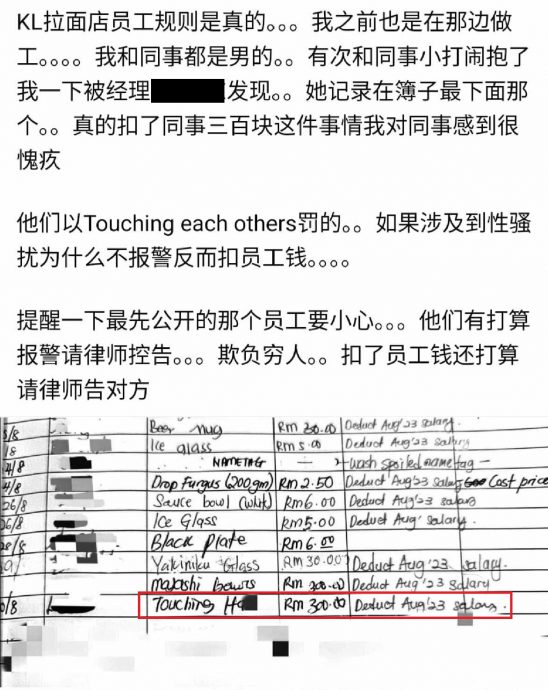 KL拉面店员工规则是真的。。。我之前也是在那边做
工。。。。我和同事都是男的。。有次和同事小打闹抱了
我一下被经理 发现。。她记录在簿子最下面那
个。。真的扣了同事三百块这件事情我对同事感到很
愧疚
他们以Touching each others罚的。。如果涉及到性骚
扰为什么不报警反而扣员工钱。。。。
提醒一下最先公开的那个员工要小心。。。他们有打算
报警请律师控告。。。欺负穷人。。扣了员工钱还打算
请律师告对方
Beer mug Rm 30.00 Deduct Aug'23 salary.
Ice glass Rm 5.00 Deduct Aug'23 Salary
NAMETAG wash spoiled nametag
Drop Fungus (200gm) Rm 2.50 Deduct Aug'23 salary Cost price
26/8 Sauce bowl (white) Rm6.00 Deduct Aug'23 salary
26/8 Ice Glass Rm5.00 Deduct Aug' salary.
Black plate Rm 6.00
Yakiniku Glass RM 30.00 Deduct Aug'23 salary.
bowls Deduct Aug'23 salary
Touching RM 300.00 Deduct Aug'23 salary.